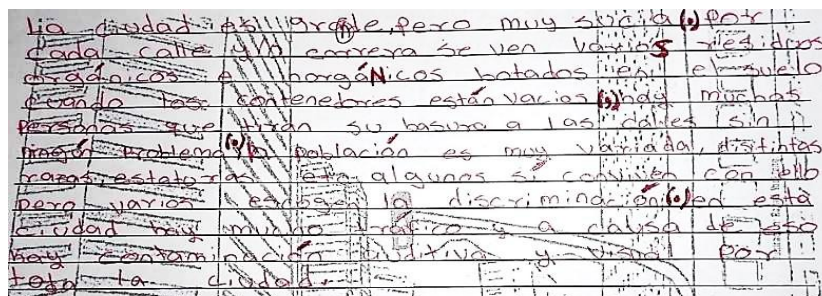 La ciudad es grande, pero muy sucia(.) por
cada calle y/o carrera se ven varios residuos
orgánicos e inorgáNicos botados en el suelo
cuando los contenedores están vacios(,) hay muchas
personas que tiran su basura a las calles sin
ningún problema(.) la población es muy variada, distintas
razas, estaturas, etc, algunos si conviven con ello
pero varios escogen la discriminación(.) en está
ciudad hay mucho tráfico y a causa de eso
hay contaminación auditiva y visual por
toda la ciudad.